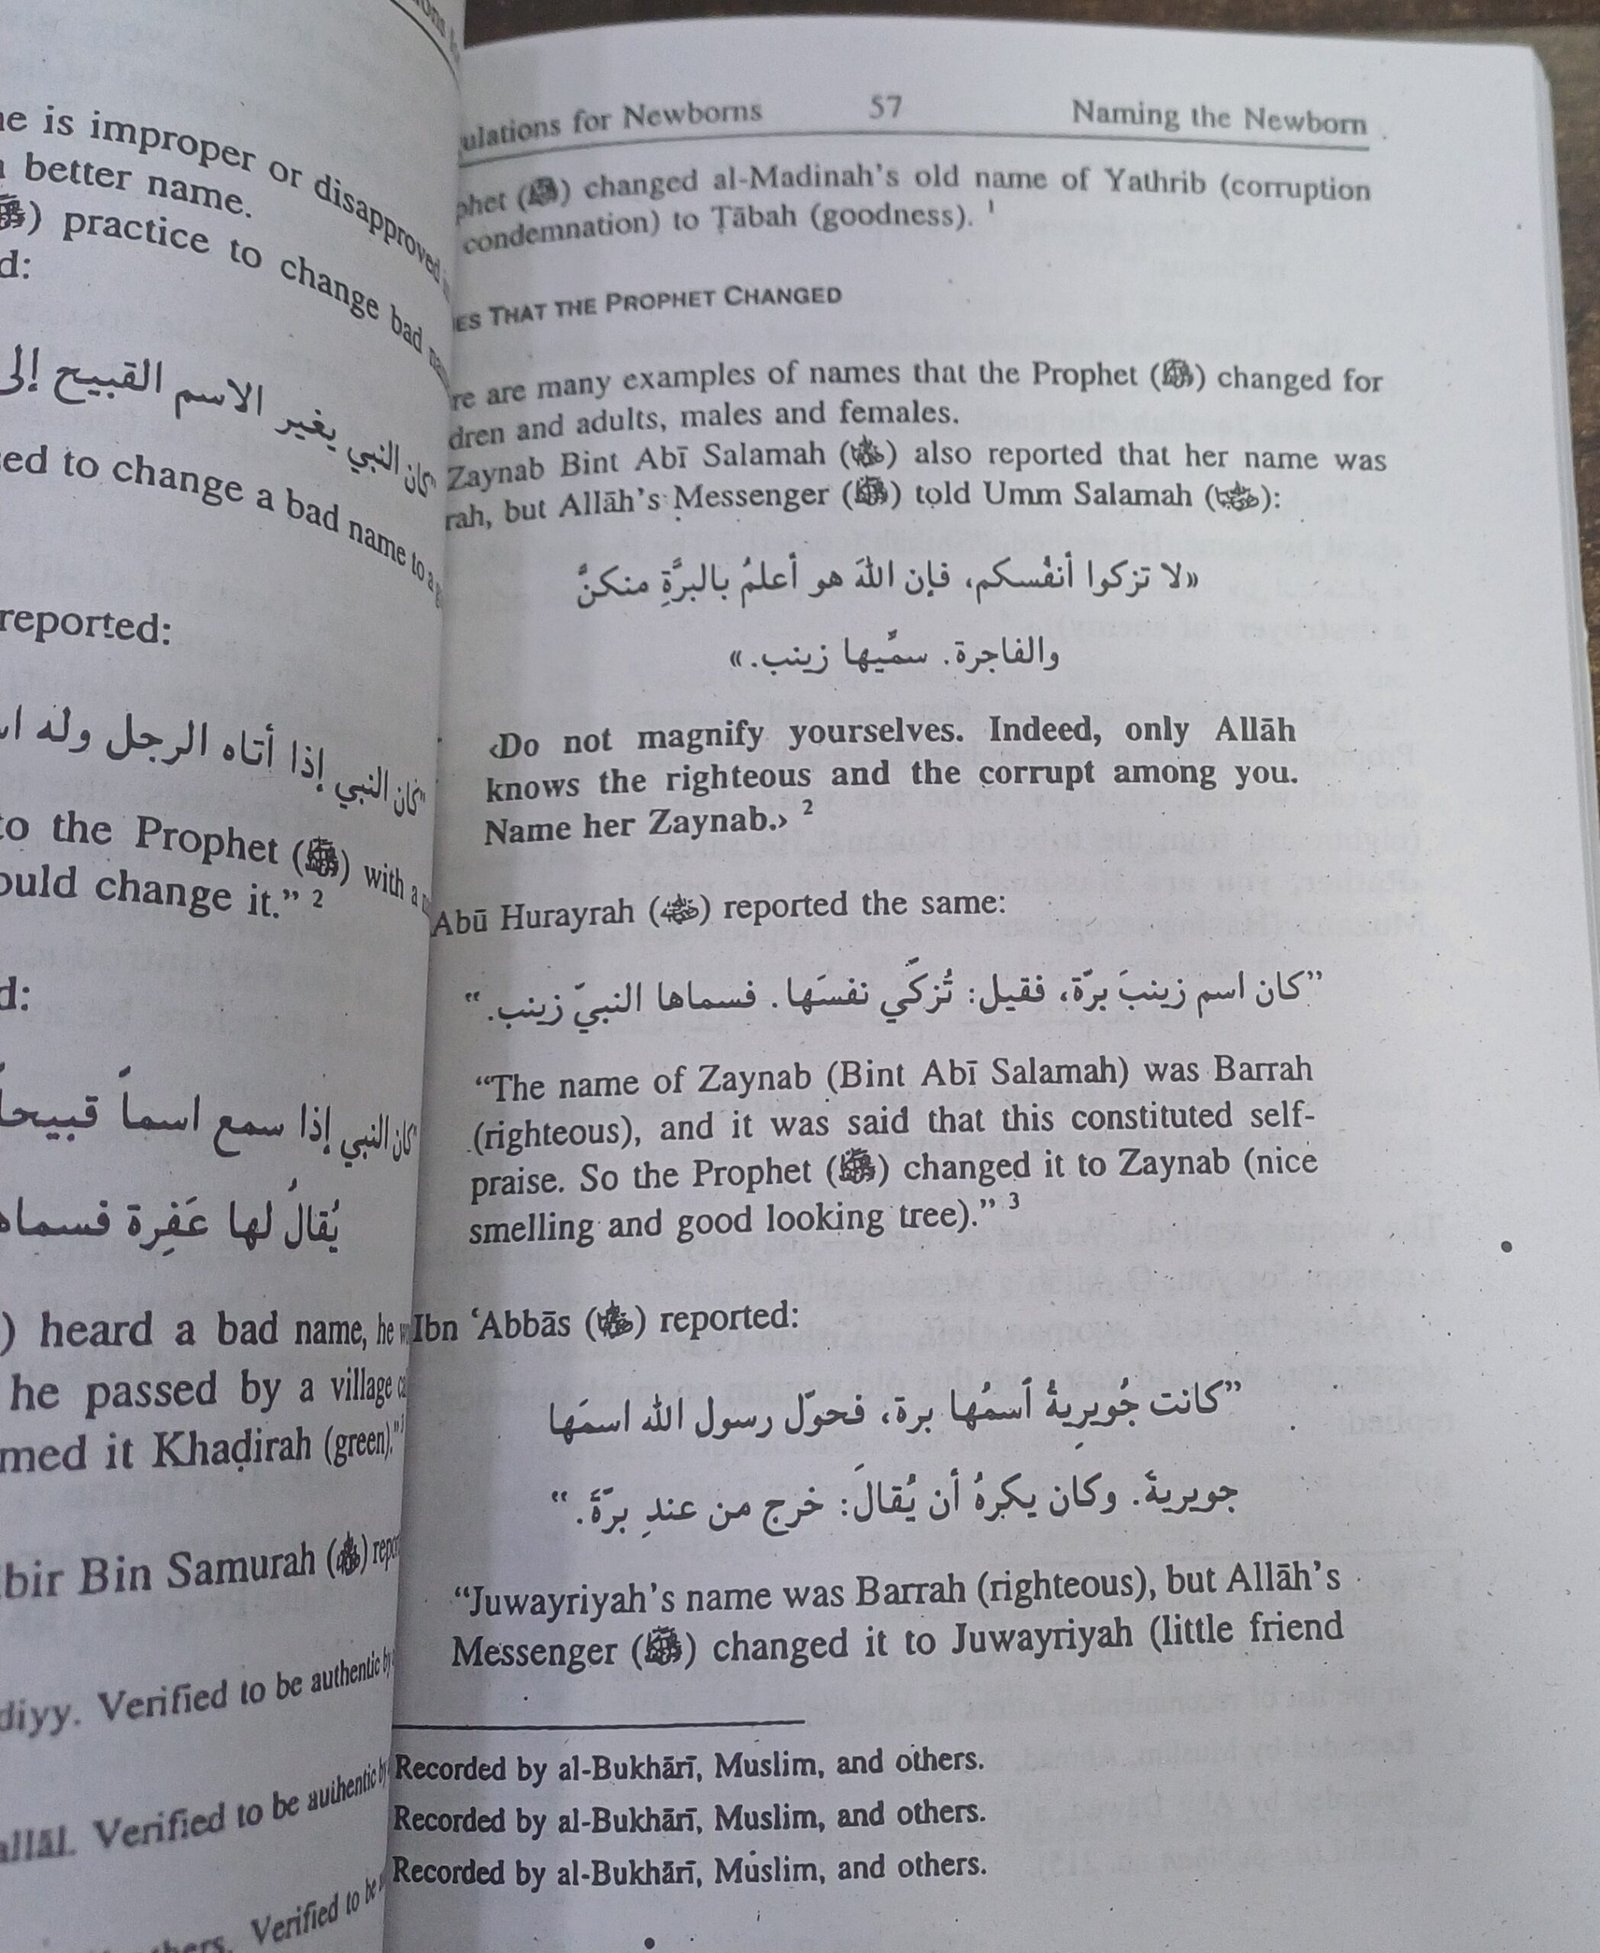 is improper or disapproved
better name.
practice to change bad
كان النبي يغير الاسم القبيح إلى
to change a bad name to a
reported:
كان النبي إذا أتاه الرجل وله
to the Prophet (ﷺ) with a
change it.” 2
كان النبي إذا سمع اسماً قبيحاً
يُقالُ لها عَفِرة
) heard a bad name, he
he passed by a village
it Khaḍirah (green).”
Bin Samurah
Verified to be authentic by
Verified to be authentic by
Verified to be
for Newborns 57 Naming the Newborn
(ﷺ) changed al-Madinah’s old name of Yathrib (corruption
condemnation) to Ṭābah (goodness). 1
THAT THE PROPHET CHANGED
are many examples of names that the Prophet (ﷺ) changed for
and adults, males and females.
Zaynab Bint Abī Salamah also reported that her name was
but Allāh’s Messenger (ﷺ) told Umm Salamah :
«لا تزكوا أنفُسكم، فإن اللهَ هو أعلمُ بالبرَّةِ منكنَّ
والفاجرة. سمِّيها زينب.»
‹Do not magnify yourselves. Indeed, only Allāh
knows the righteous and the corrupt among you.
Name her Zaynab.› 2
Abū Hurayrah reported the same:
”كان اسم زينبَ برّة، فقيل: تُزكّي نفسَها. فسماها النبيّ زينب.“
“The name of Zaynab (Bint Abī Salamah) was Barrah
(righteous), and it was said that this constituted self-
praise. So the Prophet (ﷺ) changed it to Zaynab (nice
smelling and good looking tree).” 3
Ibn ‘Abbās reported:
”كانت جُويرِيةُ ٱسمُها برة، فحوّل رسول الله اسمَها
جويريةَ. وكان يكرهُ أن يُقالَ: خرج من عندِ برّةَ.“
“Juwayriyah’s name was Barrah (righteous), but Allāh’s
Messenger (ﷺ) changed it to Juwayriyah (little friend
Recorded by al-Bukhārī, Muslim, and others.
Recorded by al-Bukhārī, Muslim, and others.
Recorded by al-Bukhārī, Muslim, and others.